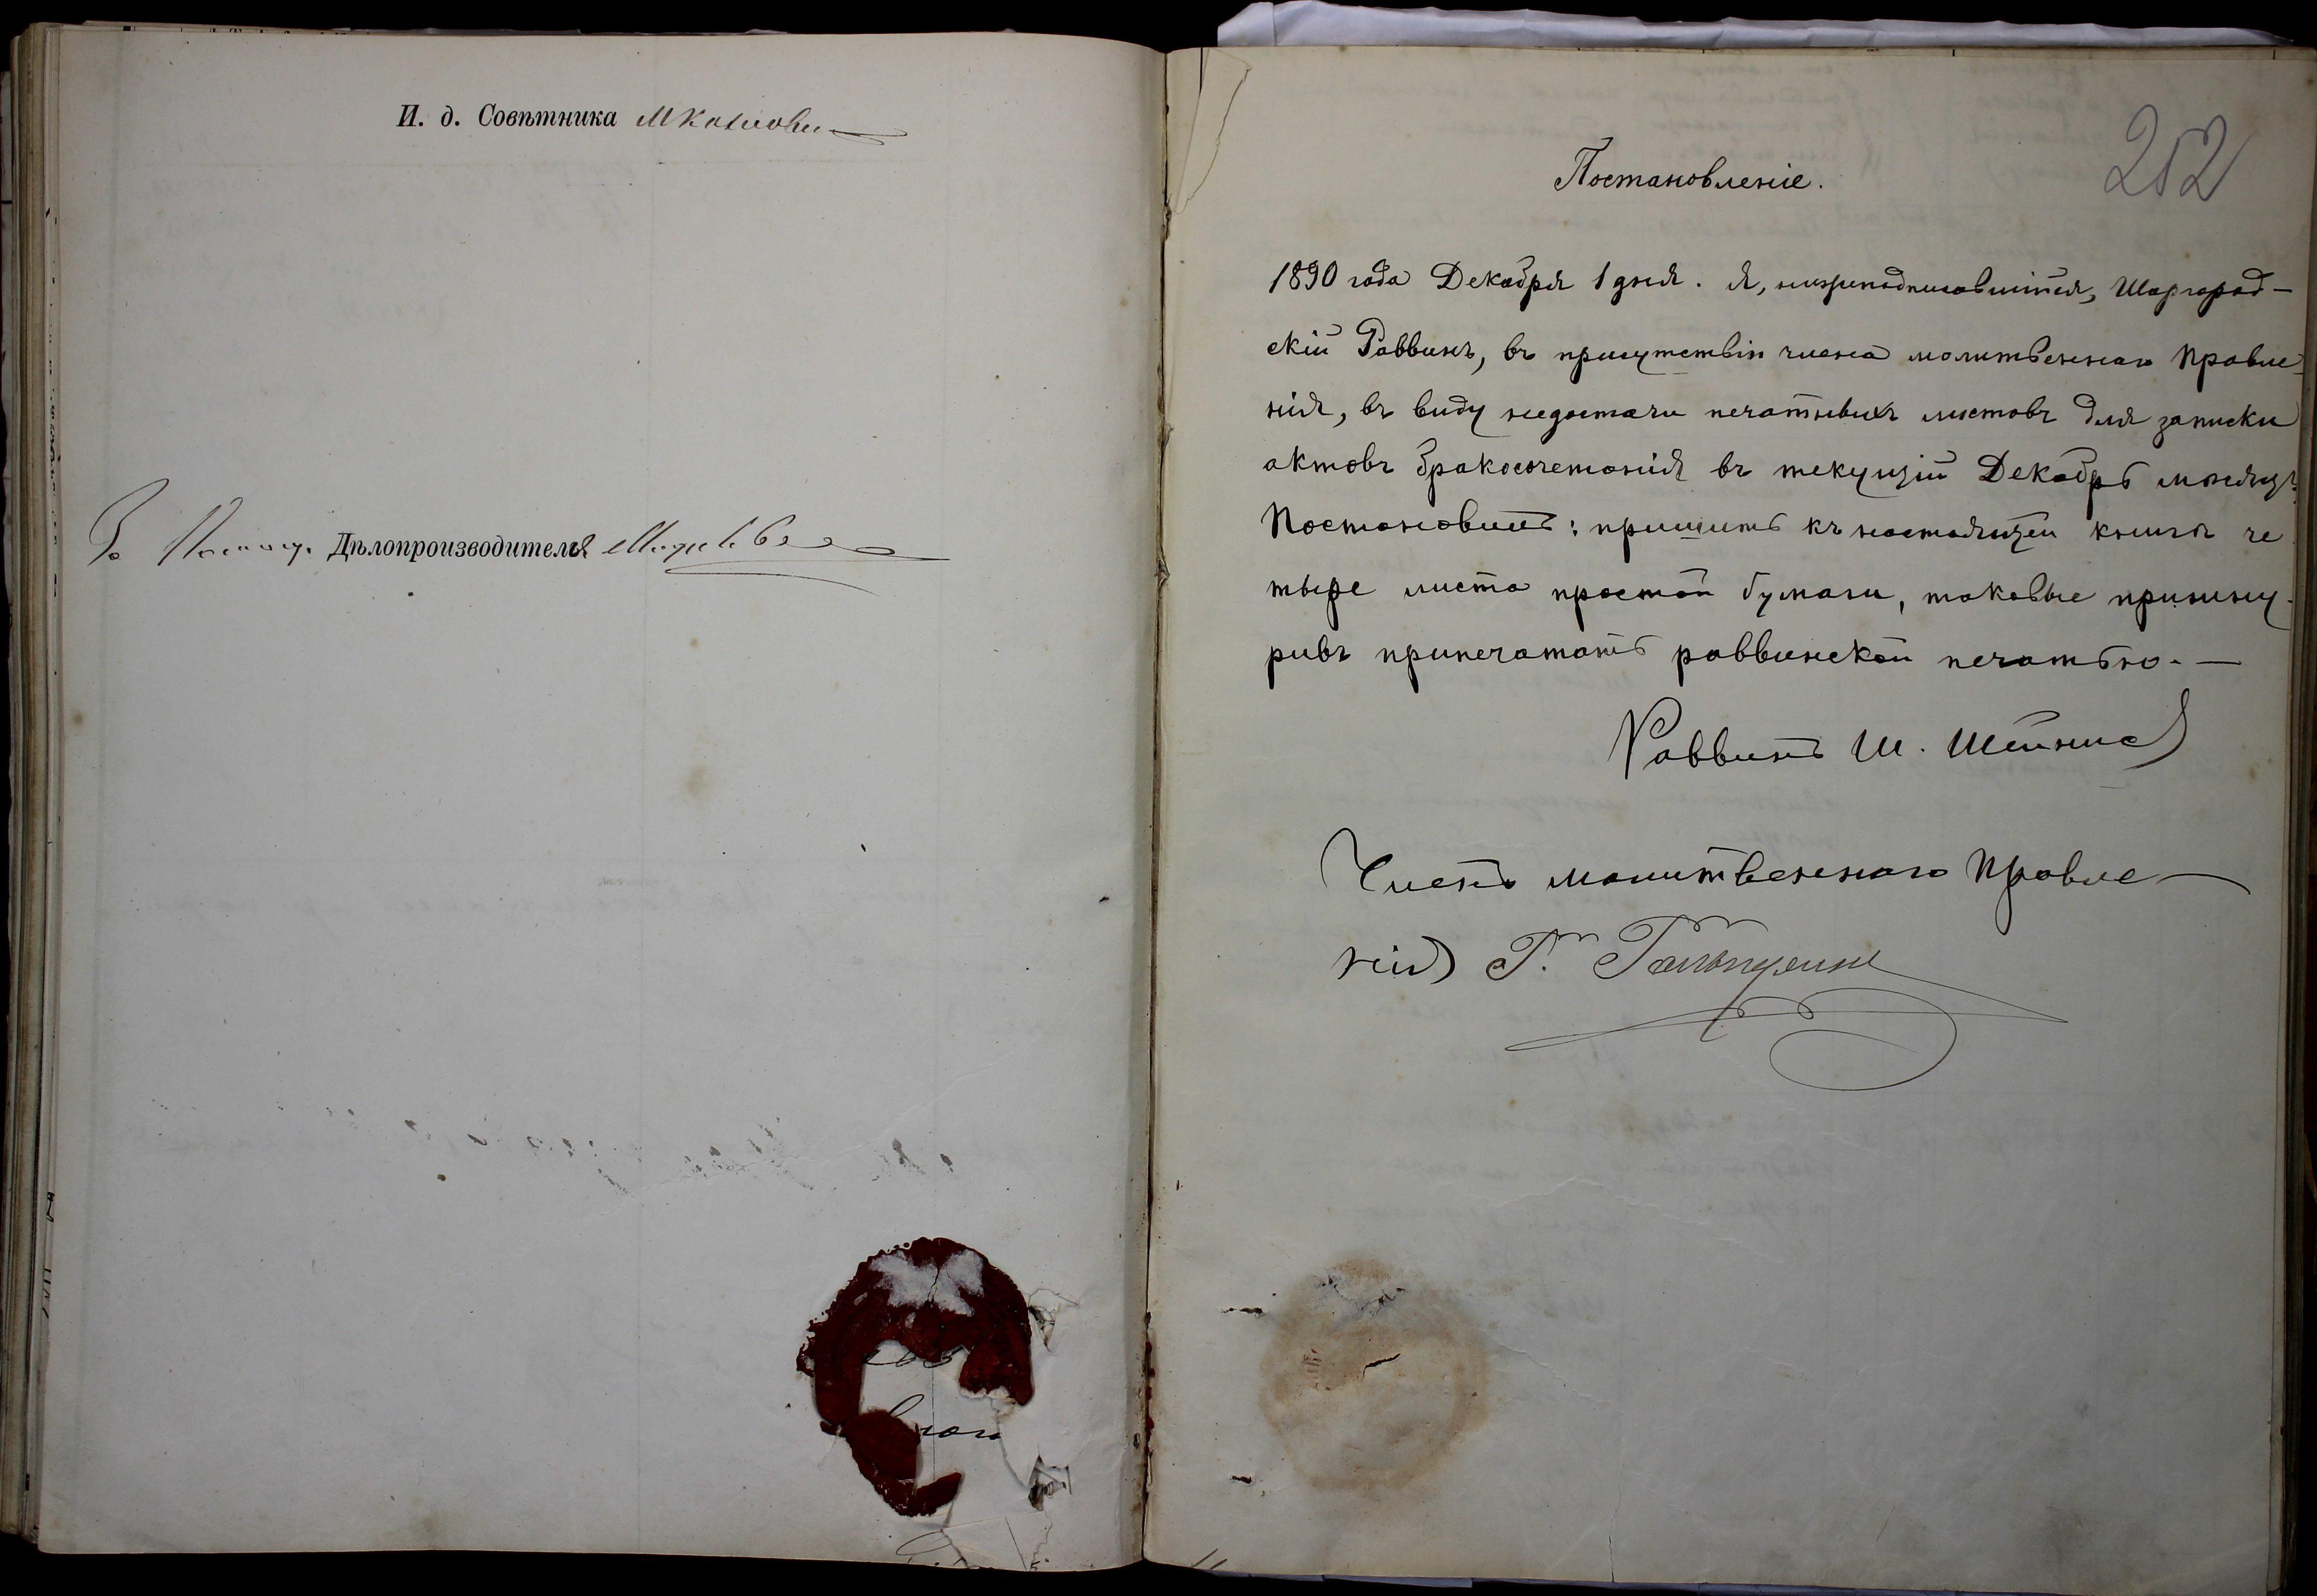 И. д. Совѣтника
За Дѣлопроизводителя
252
Постановленіе.
1890 года Декабря 1 дня. Я, нижеподписавшійся, Шаргород-
скій Раввинъ, въ присутствіи члена молитвеннаго Правле-
нія, въ виду недостачи печатныхъ листовъ для записки
актовъ бракосочетанія въ текущій Декабрь мѣсяцъ
Постановилъ: пришить къ настоящей книгѣ че
тыре листа простой бумаги, таковые прошну-
ривъ припечатать раввинской печатью. —
Раввинъ Ш. Шейнис
Членъ молитвеннаго Правле-
нія Г.